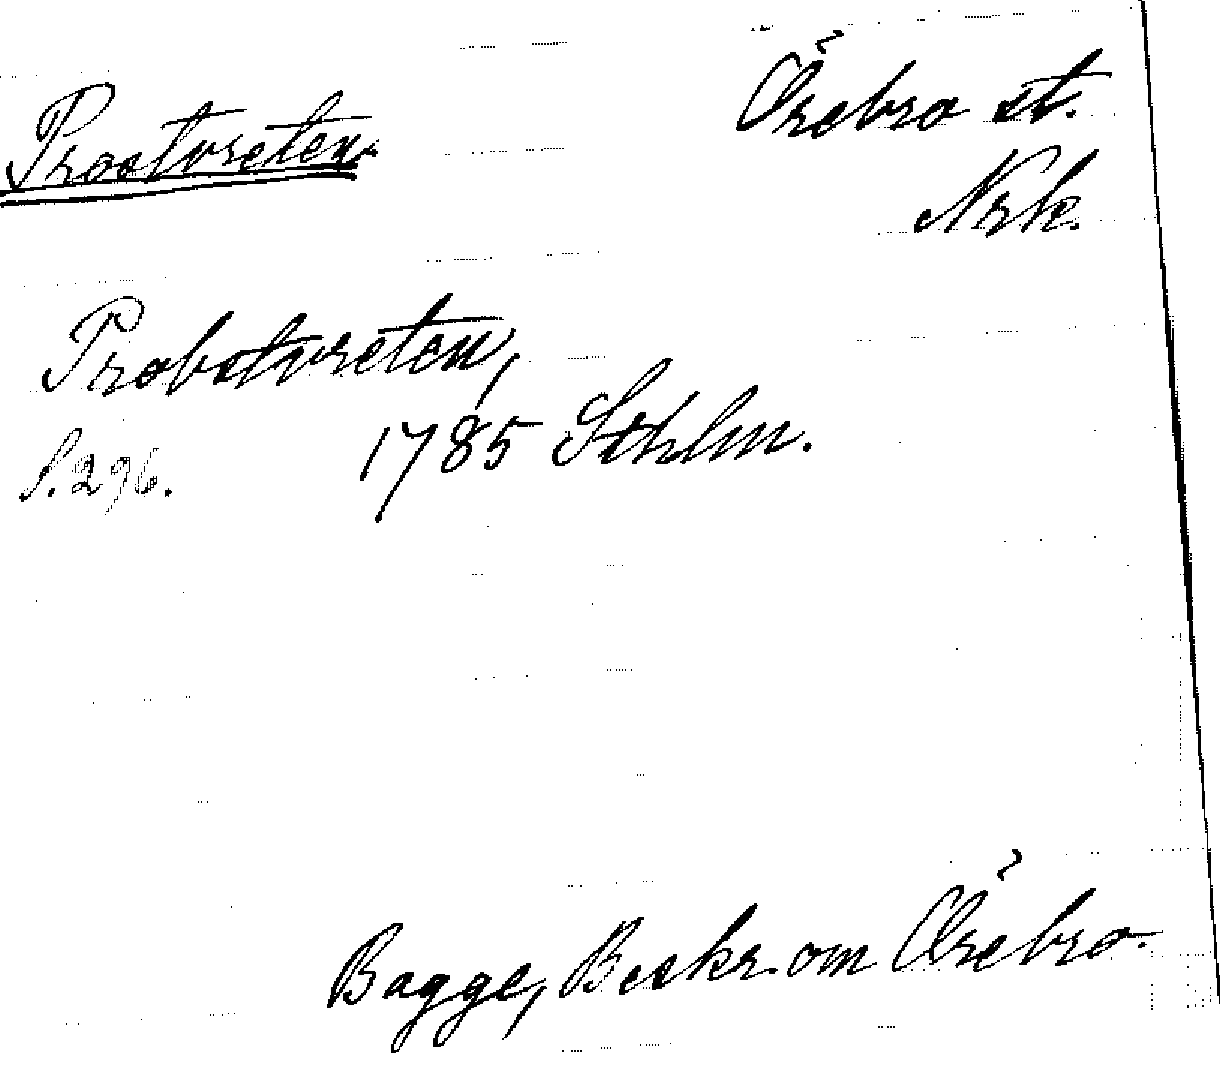 Örebro st.
Prostvreten.
Nrk.
Probstvreten,
1785 Sthlm.
S. 296.
Bagge, Beskr. om Örebro.